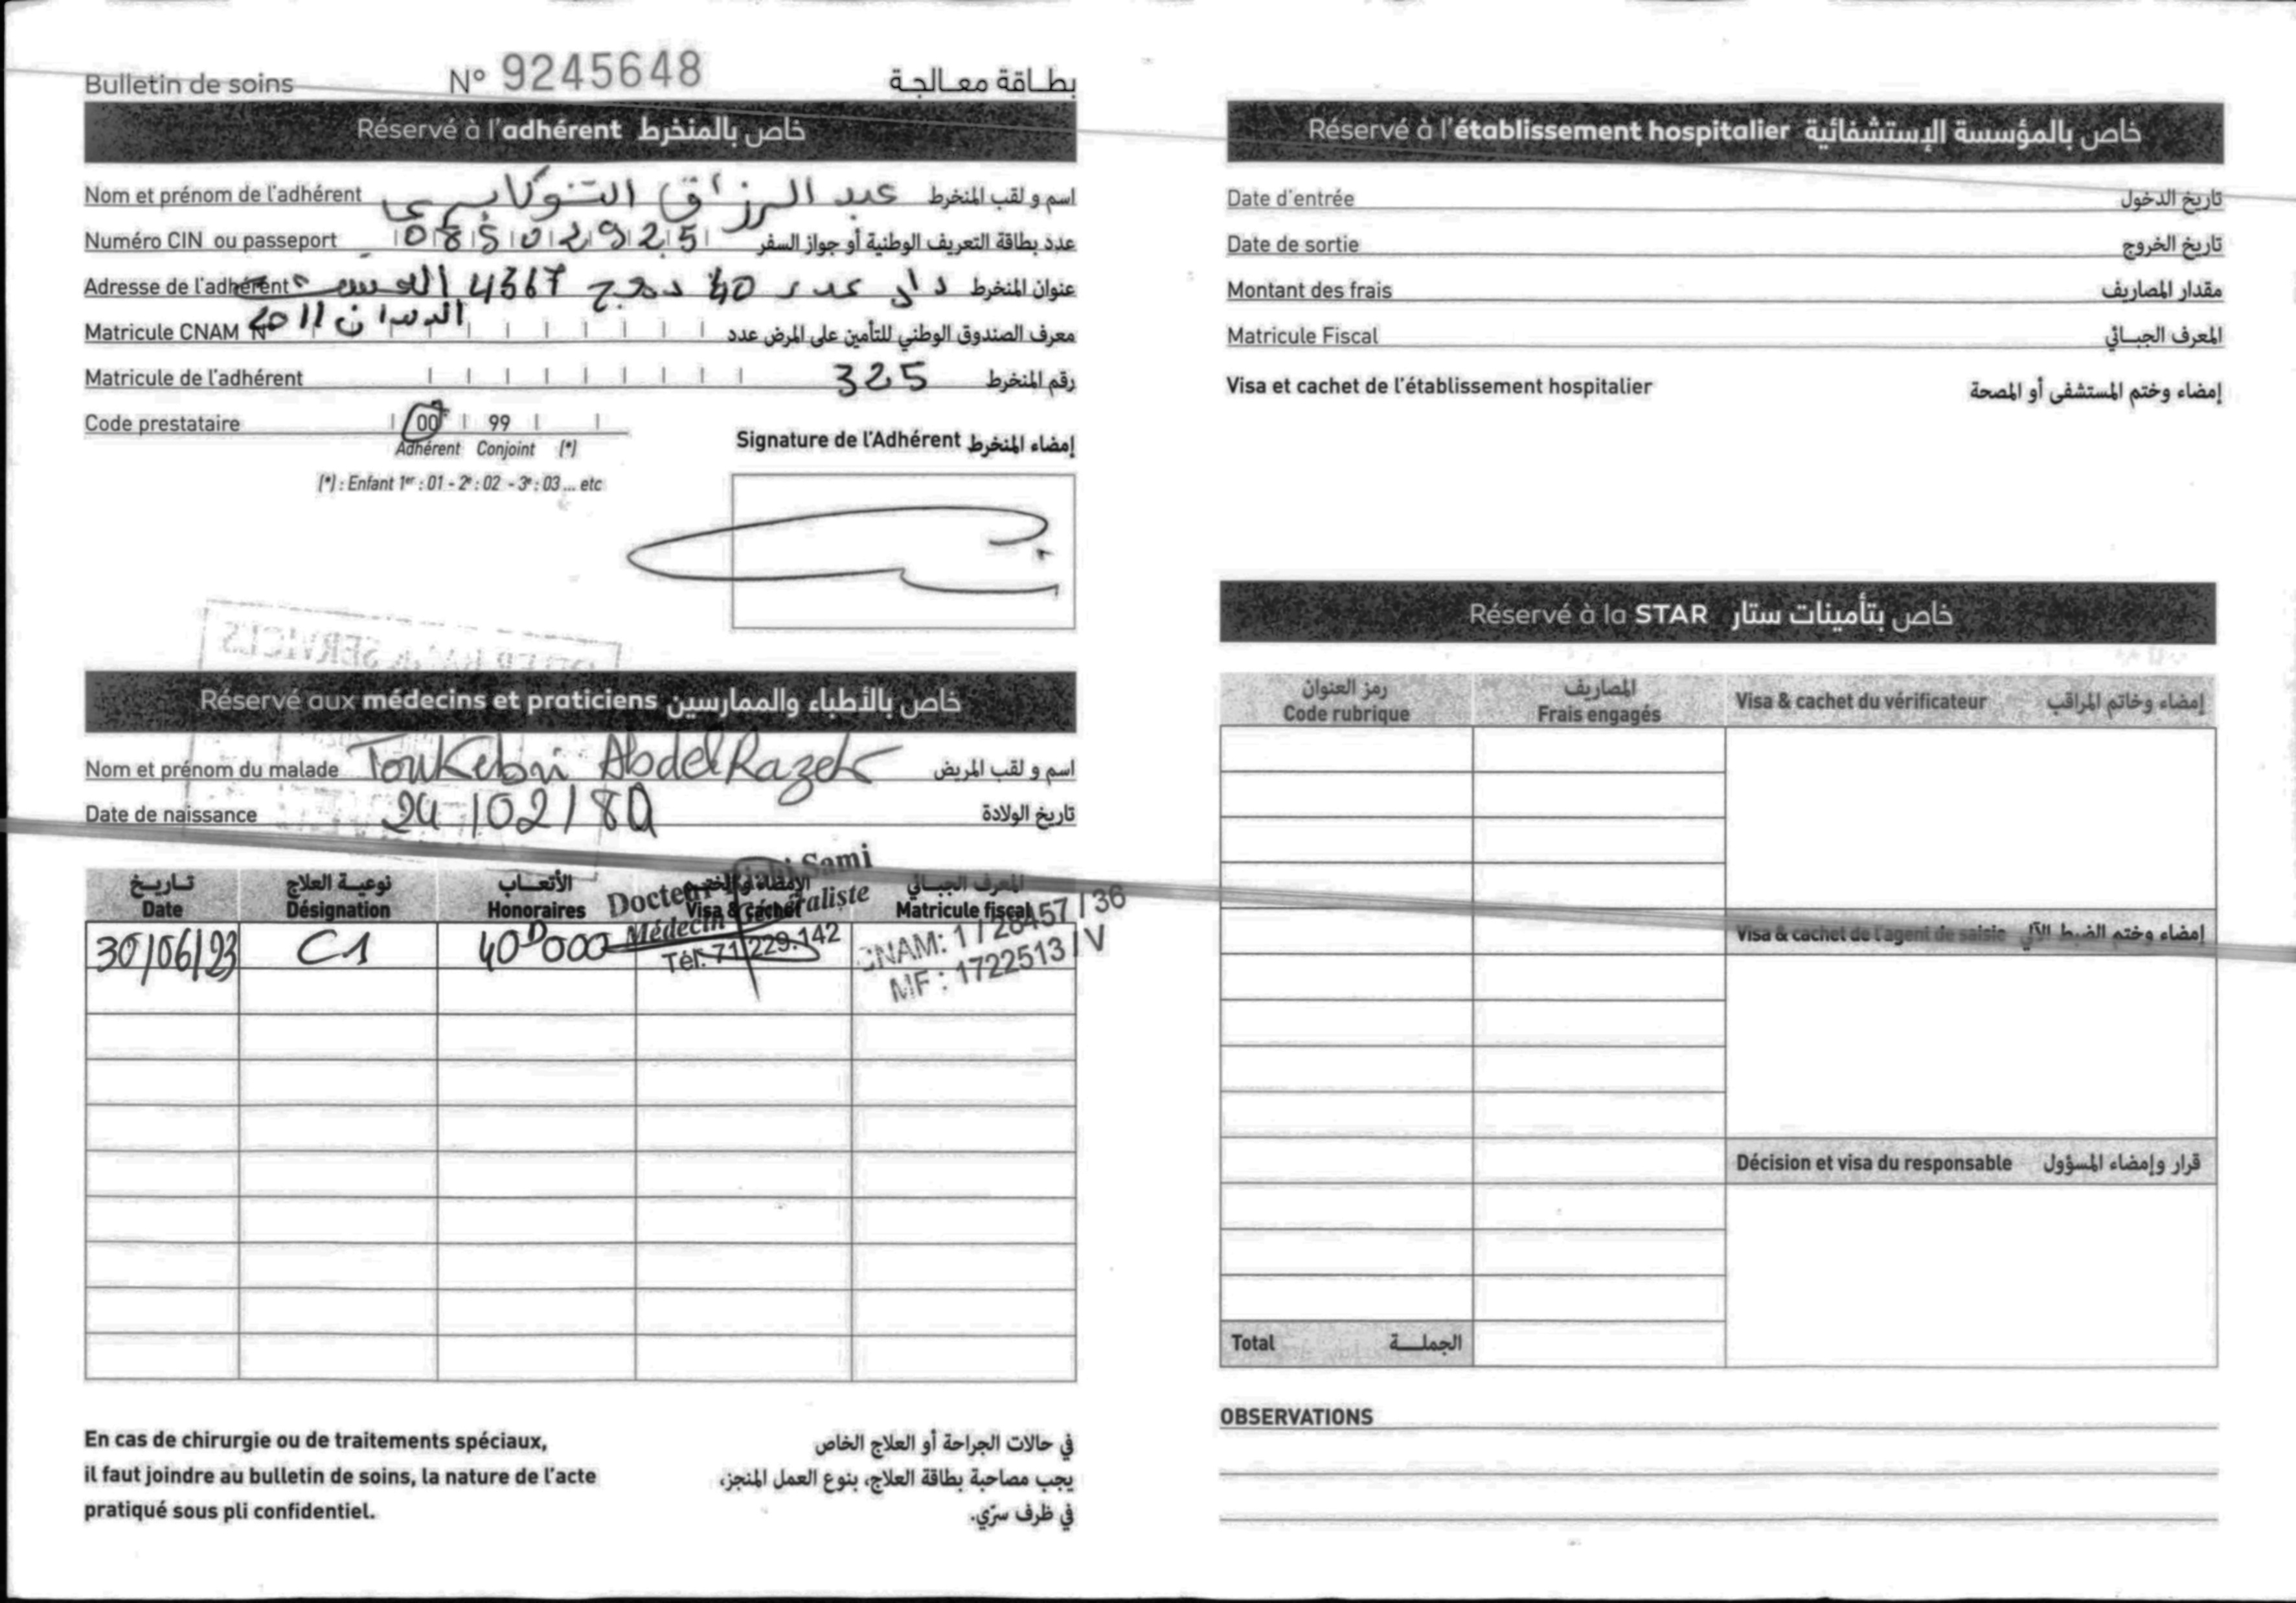 Bulletin de soins N° 9245648 بطاقة معالجة
Réservé à l'adhérent خاص بالمنخرط
Nom et prénom de l'adhérent عبد الرزاق التوكابري اسم و لقب المنخرط
Numéro CIN ou passeport 08502925 عدد بطاقة التعريف الوطنية أو جواز السفر
Adresse de l'adhérent دار عدد 40 نهج 4367 عنوان المنخرط
Matricule CNAM N° معرف الصندوق الوطني للتأمين على المرض عدد
Matricule de l'adhérent 325 رقم المنخرط
Code prestataire 00 99
Adhérent Conjoint (*)
(*) : Enfant 1er : 01 - 2e : 02 - 3e : 03 ... etc
Signature de l'Adhérent إمضاء المنخرط
Réservé aux médecins et praticiens خاص بالأطباء والممارسين
Nom et prénom du malade Toukebri AbdelRazek اسم و لقب المريض
Date de naissance 24/02/80 تاريخ الولادة
تاريخ نوعية العلاج الأتعاب الإمضاء والختم المعرف الجبائي
Date Désignation Honoraires Visa & cachet Matricule fiscal
30/06/23 C1 40D000
Docteur Sami
Médecin Généraliste
Tél: 71 229.142
CNAM: 1 / 28457 / 36
MF : 1722513 / V
En cas de chirurgie ou de traitements spéciaux,
il faut joindre au bulletin de soins, la nature de l'acte
pratiqué sous pli confidentiel.
في حالات الجراحة أو العلاج الخاص
يجب مصاحبة بطاقة العلاج، بنوع العمل المنجز،
في ظرف سرّي.
Réservé à l'établissement hospitalier خاص بالمؤسسة الإستشفائية
Date d'entrée تاريخ الدخول
Date de sortie تاريخ الخروج
Montant des frais مقدار المصاريف
Matricule Fiscal المعرف الجبائي
Visa et cachet de l'établissement hospitalier إمضاء وختم المستشفى أو المصحة
Réservé à la STAR خاص بتأمينات ستار
رمز العنوان المصاريف
Code rubrique Frais engagés Visa & cachet du vérificateur إمضاء وخاتم المراقب
Visa & cachet de l'agent de saisie إمضاء وختم الضبط الآلي
Décision et visa du responsable قرار وإمضاء المسؤول
Total الجملة
OBSERVATIONS